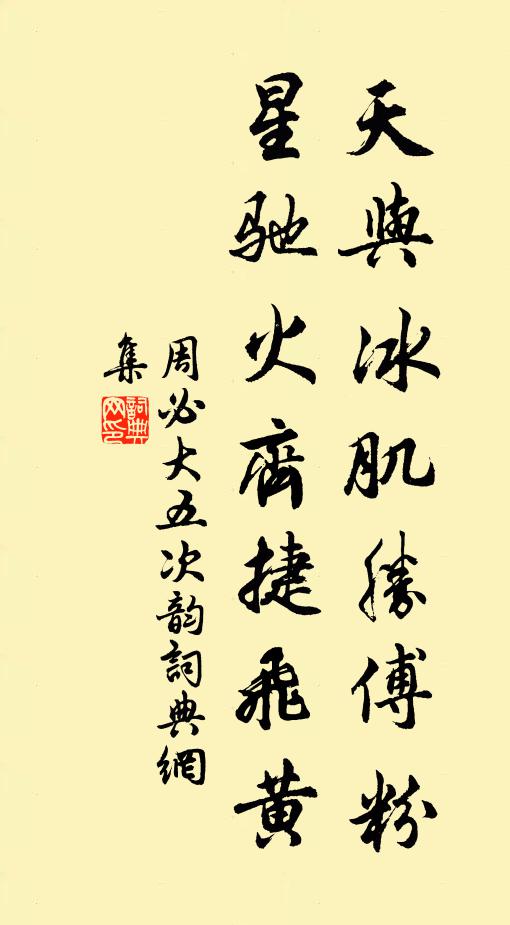 天與冰肌勝傅粉
星馳火齊捷飛黃
周必大五次韵詞典網
集
詞典网印